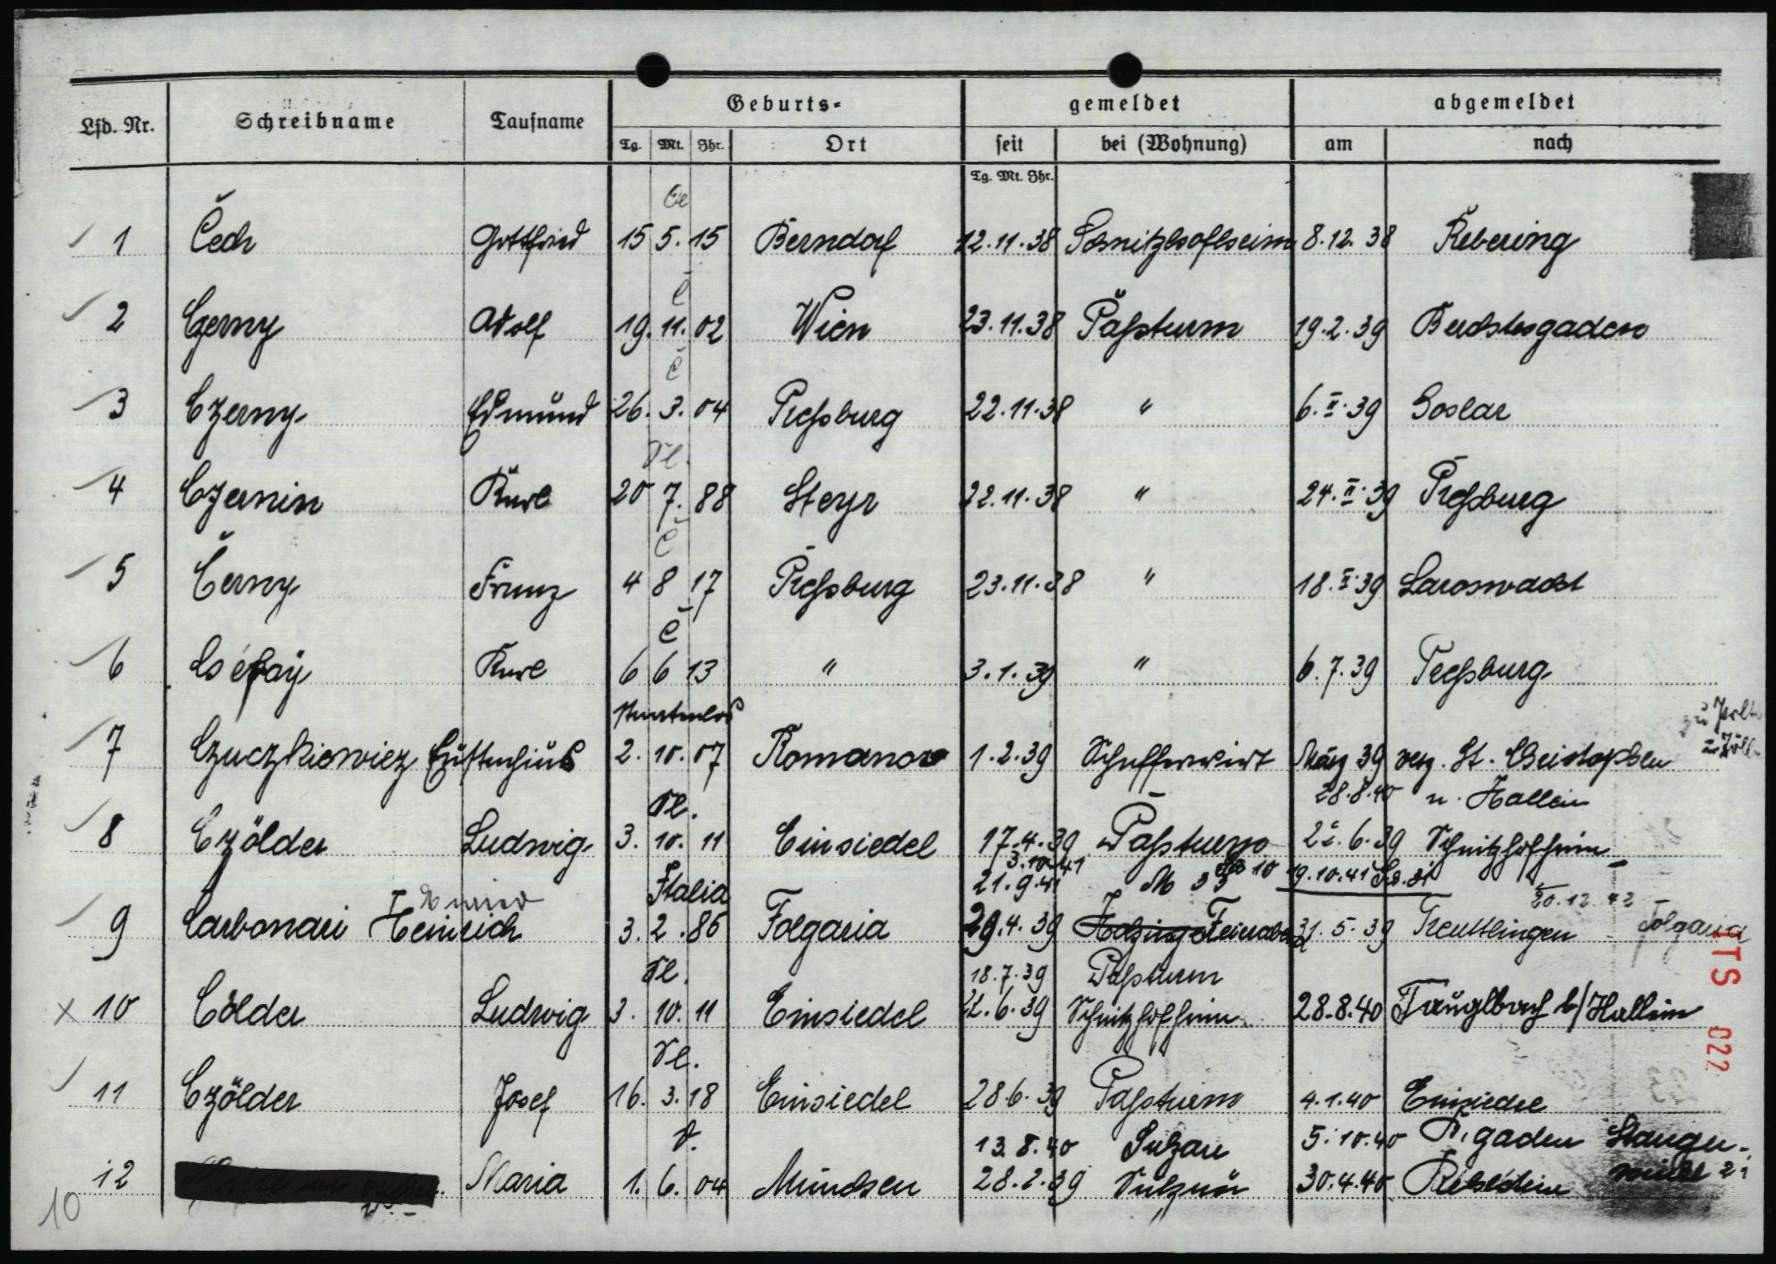 Lfd. Nr. Schreibname Taufname Geburts- gemeldet abgemeldet
Tg. Mt. Jhr. Ort seit bei (Wohnung) am nach
Tg. Mt. Jhr.
1 Čech Gottfried 15 5. 15 Berndorf 12.11.38 8.12.38
Č
2 Czerny Adolf 19. 11. 02 Wien 23.11.38 Paßturm 19.2.39 Berchtesgaden
Č
3 Czerny Edmund 26. 3. 04 Preßburg 22.11.38 " 6.II.39 Goslar
Vl.
4 Czernin Karl 20 7. 88 Steyr 22.11.38 " 24.II.39 Preßburg
Č
5 Černy Franz 4 8 17 Preßburg 23.11.38 " 18.II.39
Č
6 Karl 6 6 13 " 3.1.39 " 6.7.39 Preßburg
Staatenlos
7 Czuczkiewicz Eustachius 2. 10. 07 Romanow 1.2.39 Schafferwirt März 39 verz. St. Christophen
28.8.40 n. Hallein
Vl.
8 Czölder Ludwig 3. 10. 11 Einsiedel 17.4.39 Paßturm 22.6.39 Schnitzhofheim
3.10.41
21.9.41 M 33 19.10.41
Italia
20.12.42
9 Carbonari Heinrich 3. 2. 86 Folgaria 29.4.39 31.5.39 Treuttlingen Folgaria
Vl. 18.7.39 Paßturm
10 Cölder Ludwig 3. 10. 11 Einsiedel 22.6.39 Schnitzhofheim 28.8.40 Tauglbach b/Hallein
Vl.
11 Czölder Josef 16. 3. 18 Einsiedel 28.6.39 Paßturm 4.1.40 Einsiedel
13.8.40 Sulzau 5.10.40 B.gaden
12 Maria 1. 6. 04 28.2.39 30.4.40
10
ITS 022